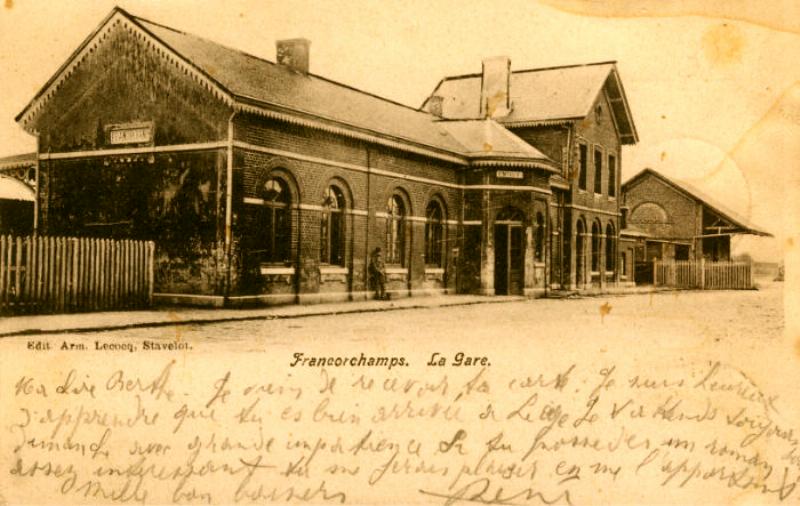 Edit. Arm. Lecocq, Stavelot.
Francorchamps. La Gare.
Berthe. Je viens de recevoir ta carte. Je suis heureux
d'apprendre que tu es bien arrivée à Liège Je t'attends toujours
dimanche avec grande impatience Si tu possèdes un roman
assez intéressant tu me ferais plaisir en me l'apportant
Mille bon baisers René